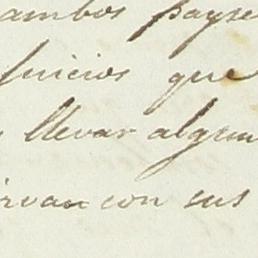 ambos payse
juicios que
llevar algun
irvan con sus